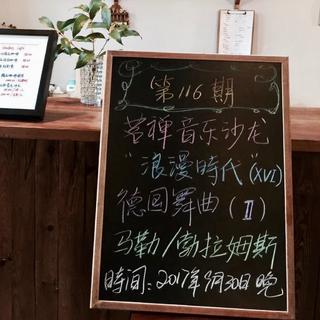 第116期
苦禅音乐沙龙
“浪漫時代”(XVI)
德国舞曲(II)
马勒/勃拉姆斯
時间:2017年9月30日 晚